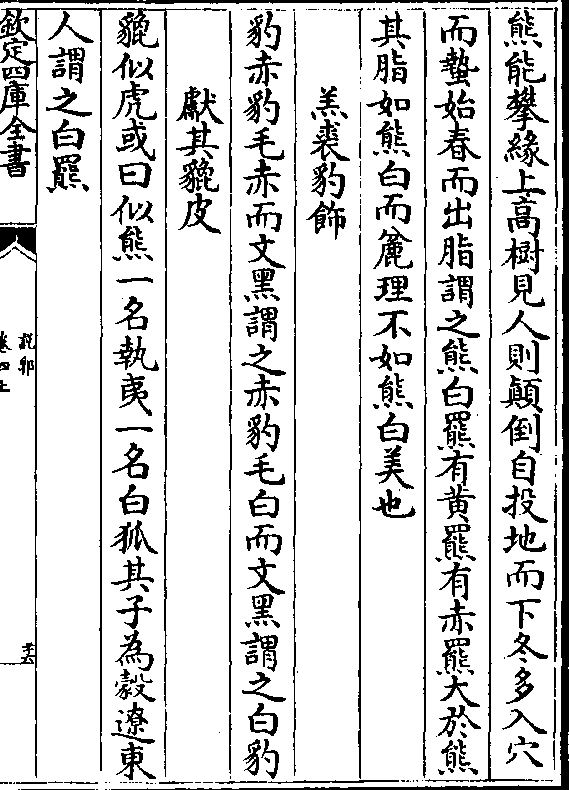 熊能攀緣上高樹見人則顛倒自投地而下冬多入穴
而蟄始春而出脂謂之熊白羆有黃羆有赤羆大於熊
其脂如熊白而麄理不如熊白美也
羔裘豹飾
豹赤豹毛赤而文黑謂之赤豹毛白而文黑謂之白豹
獻其貔皮
貔似虎或曰似熊一名執夷一名白狐其子為豰遼東
人謂之白羆
欽定四庫全書